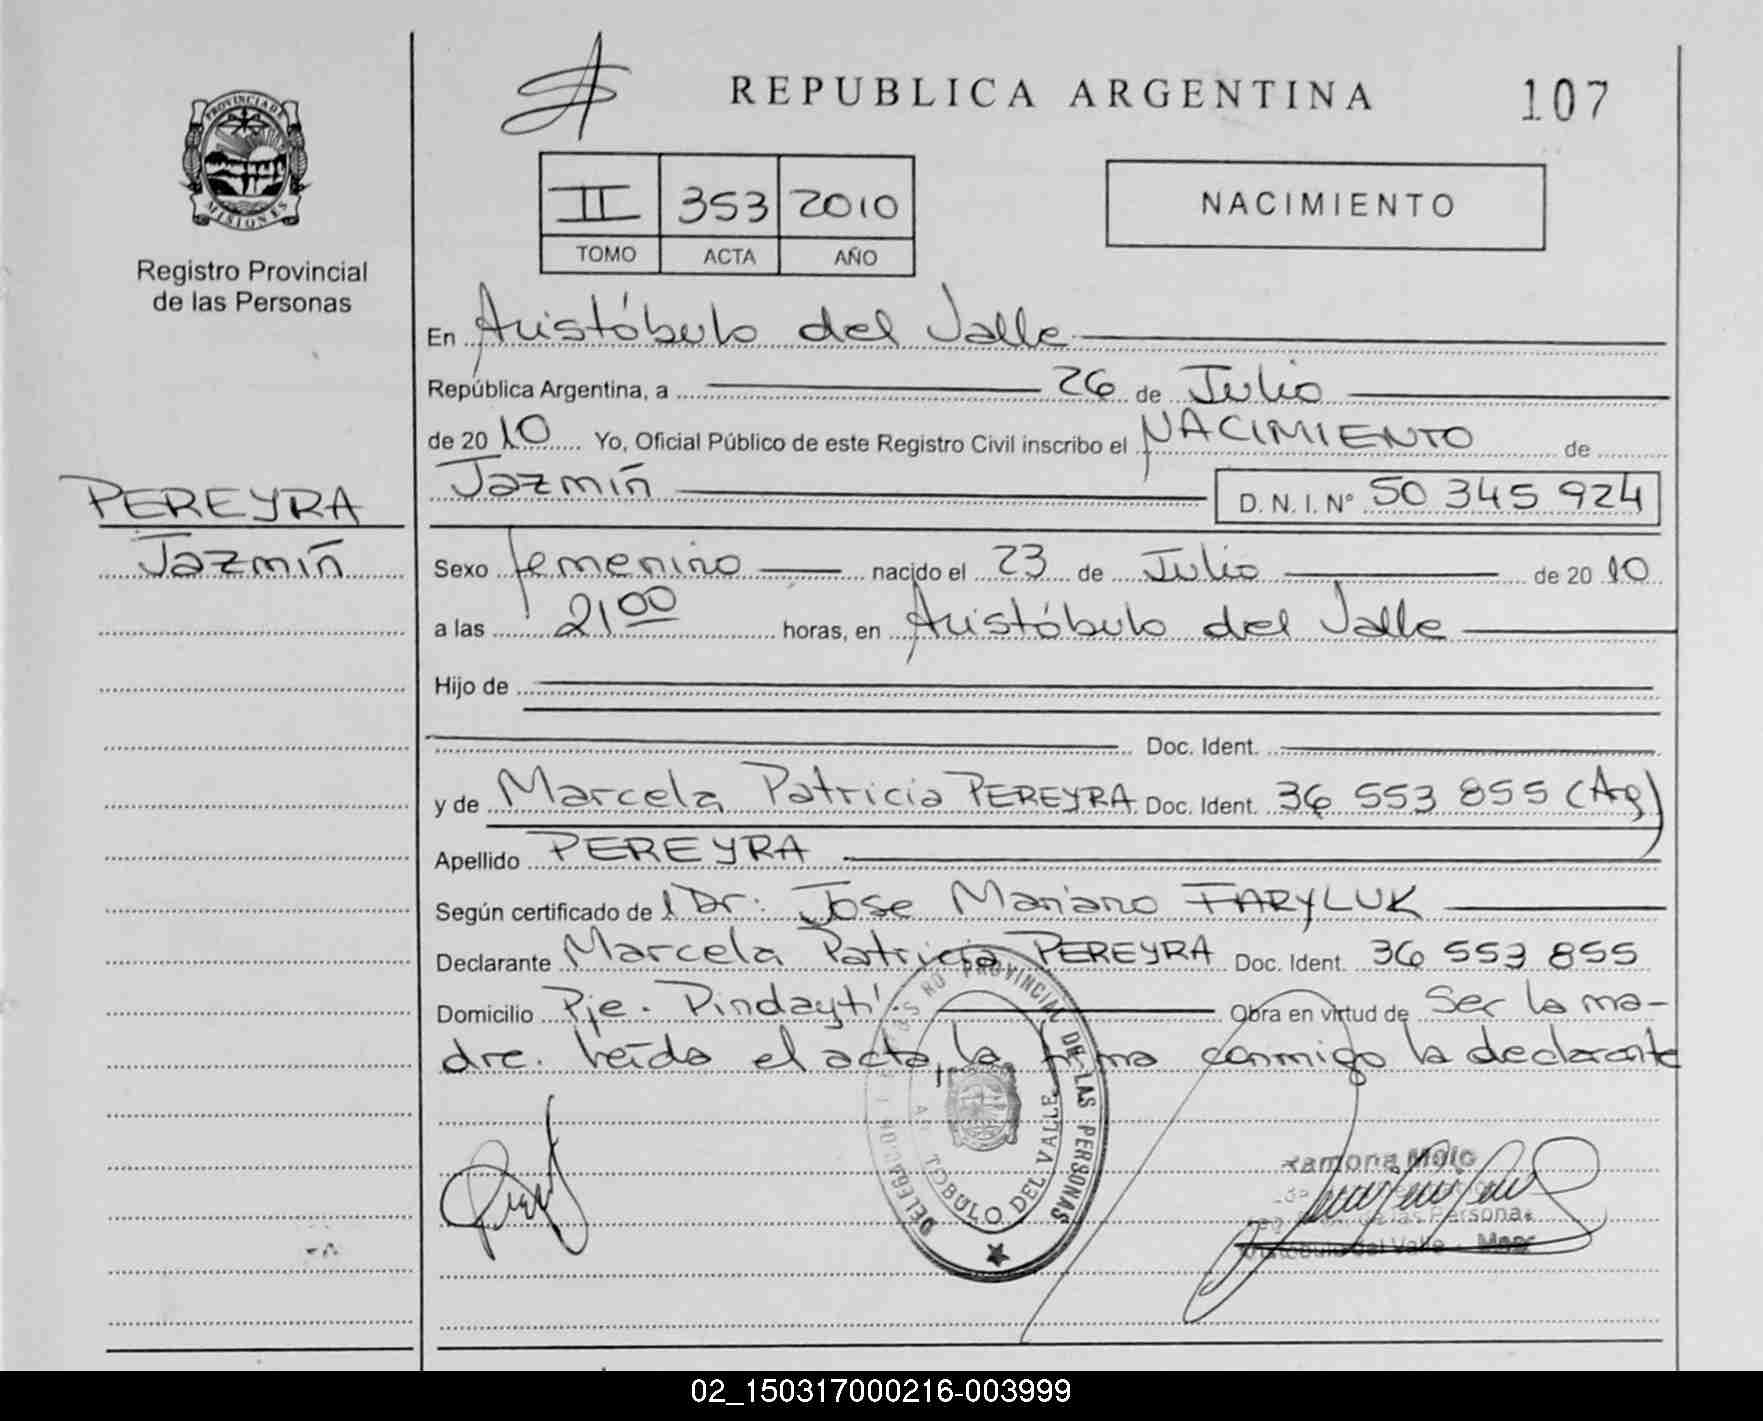 PROVINCIA DE
MISIONES
Registro Provincial
de las Personas
REPUBLICA ARGENTINA
107
II 353 2010
TOMO ACTA AÑO
NACIMIENTO
En Aristóbulo del Valle
República Argentina, a 26 de Julio
de 2010 Yo, Oficial Público de este Registro Civil inscribo el NACIMIENTO de
Jazmín D. N. I. Nº 50 345 924
PEREYRA
Jazmín
Sexo femenino nacido el 23 de Julio de 2010
a las 21 00 horas, en Aristóbulo del Valle
Hijo de
Doc. Ident.
y de Marcela Patricia PEREYRA Doc. Ident. 36 553 855 (Ag)
Apellido PEREYRA
Según certificado del Dr: Jose Mariano FARYLUK
Declarante Marcela Patricia PEREYRA Doc. Ident. 36 553 855
Domicilio Pje. Pindaytí. Obra en virtud de Ser la ma-
dre. Leída el acta, la firma conmigo la declarante
PROVINCIAL DE LAS PERSONAS
DELEGACION
TOBULO DEL VALLE
Ramona
de las Personas
Aristóbulo del Valle
02_150317000216-003999